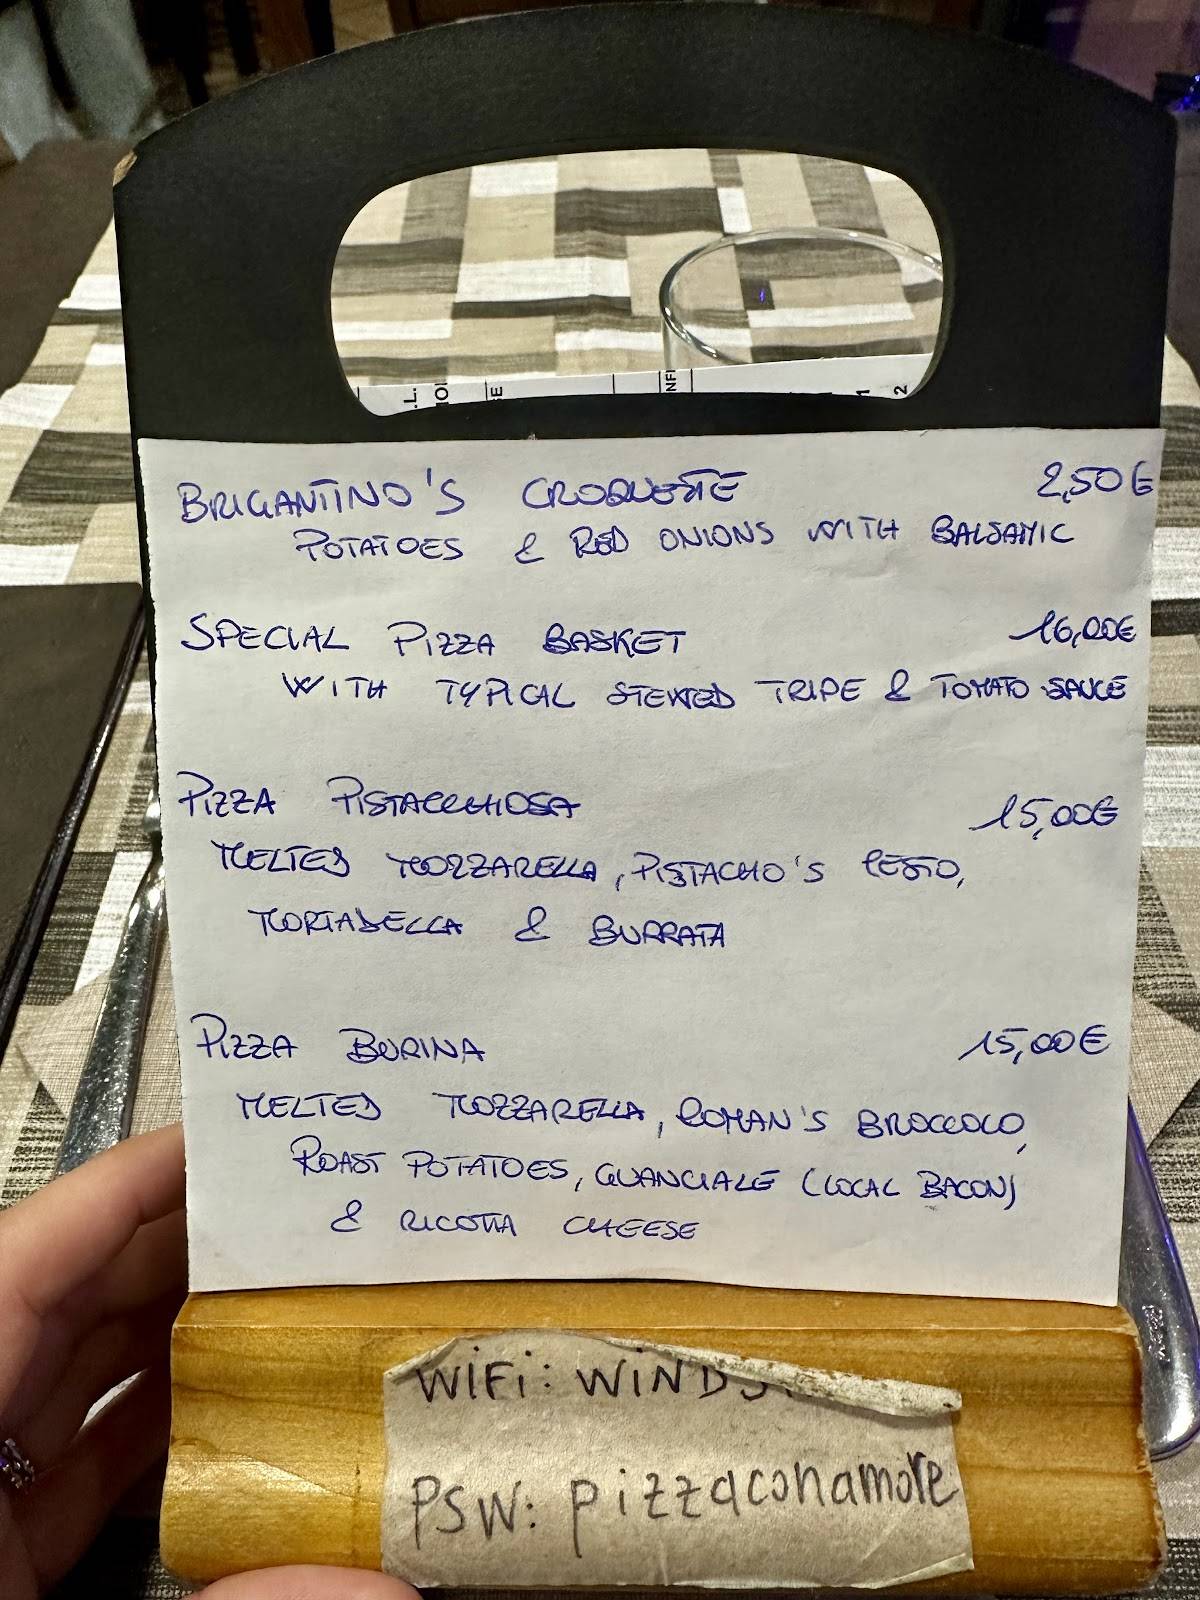 BRIGANTINO'S CROQUETTE 2,50€
POTATOES & RED ONIONS WITH BALSAMIC
SPECIAL PIZZA BASKET 16,00€
WITH TYPICAL STEWED TRIPE & TOMATO SAUCE
PIZZA PISTACCHIOSA 15,00€
MELTED MOZZARELLA, PISTACHO'S PESTO,
MORTADELLA & BURRATA
PIZZA BURINA 15,00€
MELTED MOZZARELLA, ROMAN'S BROCCOLO,
ROAST POTATOES, GUANCIALE (LOCAL BACON)
& RICOTTA CHEESE
WiFi:
PSW: pizzaconamore